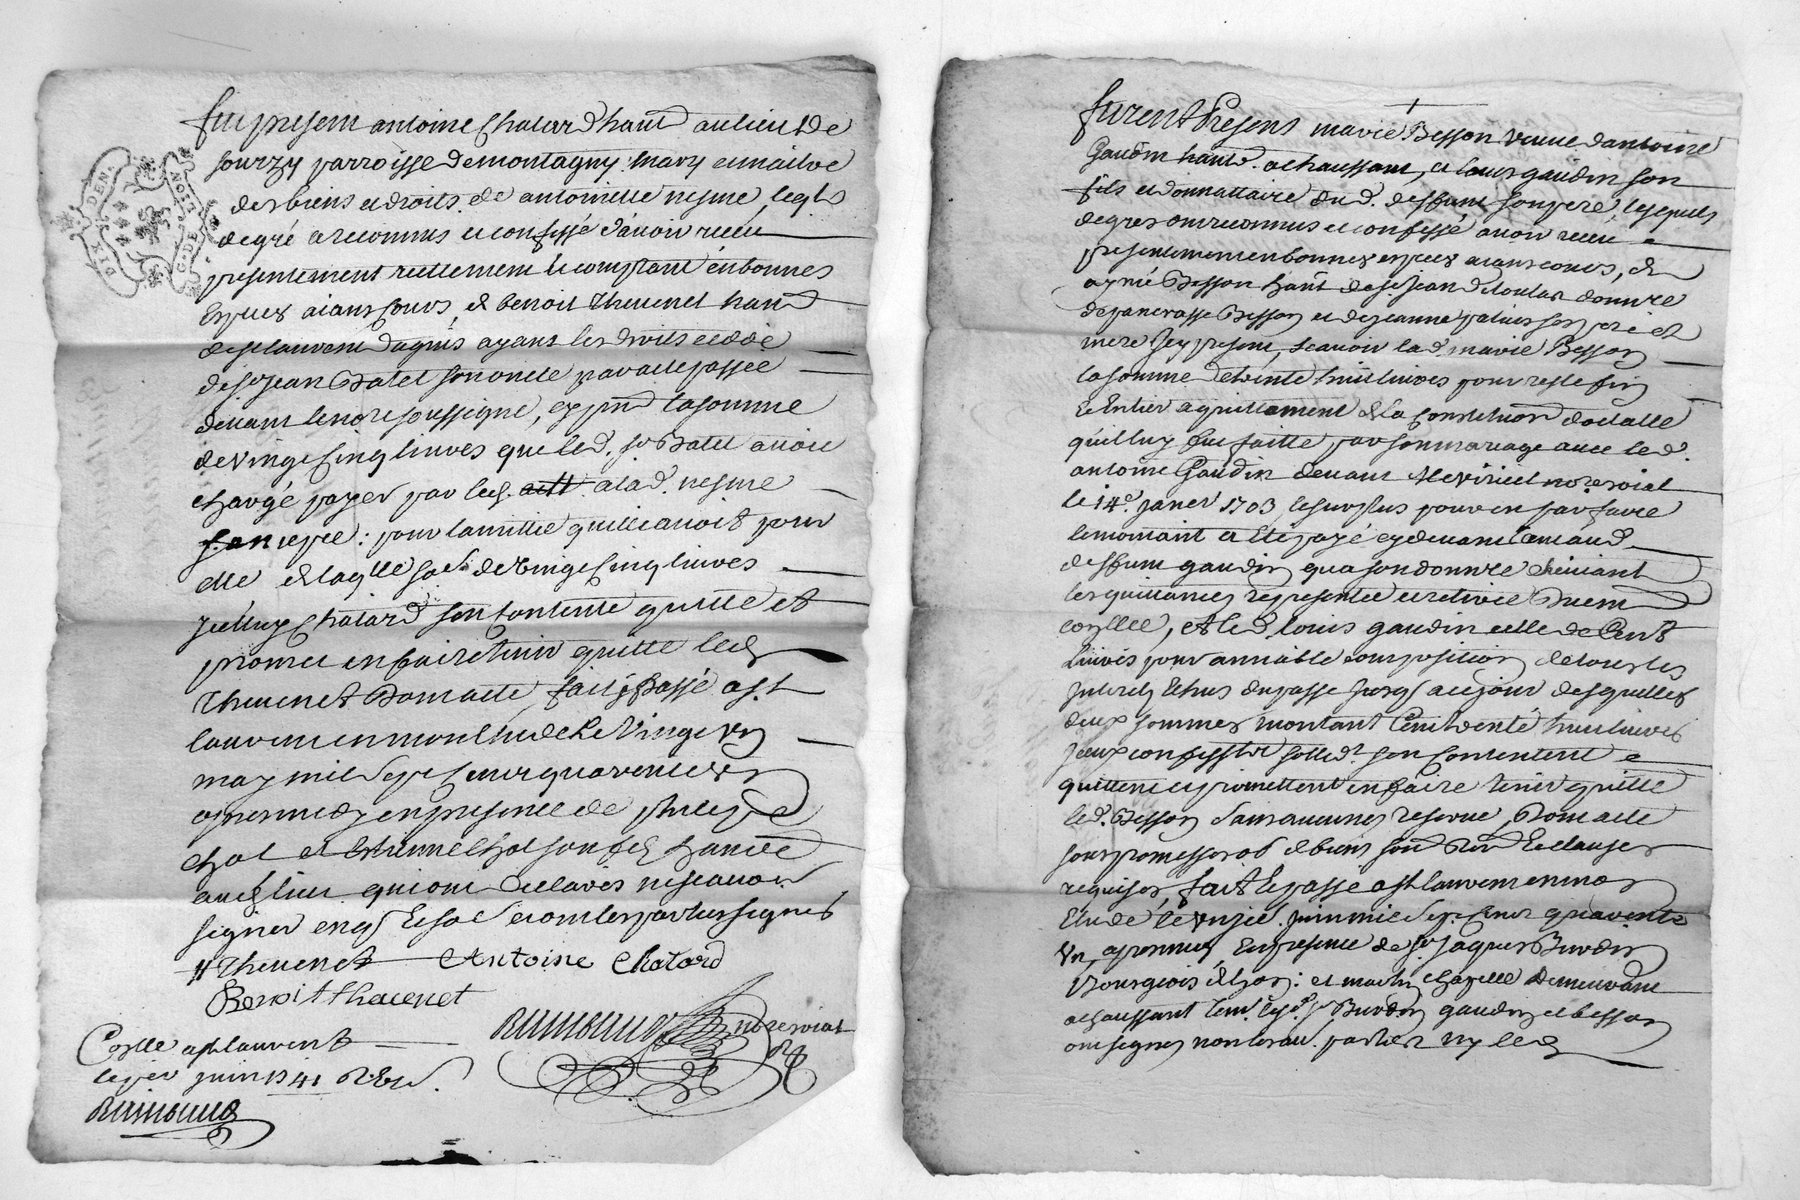 DIX DEN.
G. DE LION
fut present antoine Chatard habt. au lieu de
sourzy parroisse de montagny mary et maitre
des biens et droits de antoinette nesme, leql.
de gré a reconnus et confessé d'avoir receu
presentement reellement et comptant en bonnes
especes aians cours, de benoit thevenet habt.
de st laurent dagnis ayant les droits cedde
de sr. jean Batel son oncle par acte passée
devant le nore soussigne, cy pnt. la somme
de vingt cinq livres que led. sr. Batel avoit
chargé payer par led. a lad. nesme
: pour l'amittie quil avoit pour
elle de laqlle some de vingt cinq livres
icelluy Chatard son contente quitte et
promet en faire tenir quitte led.
thevenet Dont acte, fait & Passé a st.
laurent en mon etude le vingt un
may mil sept cent quarente un
apres midy en presence de
chol et Estienne chol son fils habt.
aud. lieu qui ont declarés ne scavoir
signer enqs. et so.es et ont les parties signés
thevenet Antoine Chatard
Benoit thevenet
nore roial
Coylle a st laurent
le per juin 1741 R.
furent Presens marie Besson veuve d'antoine
Gaudin habte. a chaussant, et louis gaudin son
fils et donnattaire du d. deffunt son pere, lesquels
de gres ont reconnus et confessé avoir receu
presentement en bonnes especes aians cours, de
aymé Besson habt. de st jean de toulas donnre
de pancrasse Besson et de jeanne palais ses pere et
mere icy present, scavoir lad. marie Besson
la somme de trente huit livres pour reste fin
et entier aquittement de la constitution dotalle
quil luy fut faitte par son mariage avec led.
antoine Gaudin devant Me nore roial
le 14e. janer. 1703 le surplus pour en parfaire
le montant a eté payé cy devant aud.
deffunt gaudin qu a son donnre suivant
les quittances represantée et retirée
coyllée, et led. louis gaudin celle de Cent
livres pour amiable composition de tous les
interets echus du passe jusqs a ce jour desquelles
deux sommes montant Cent trente huit livres
iceux confessants son contentent
quittent et promettent en faire tenir quitte
led. Besson sans aucunes reserve, Dont acte
sous promesses ob. de biens et clauses
requises, fait et passe a st laurent en mon
etude le onzie. juin mil sept cent quarente
un, apres midy en presence de sr. jaques Burdin
Bourgeois de lyon : et martin chapelle demeurant
a chaussant tem. leqs. sr. Burdin gaudin et besson
ont signes non lesau. parties ny led.